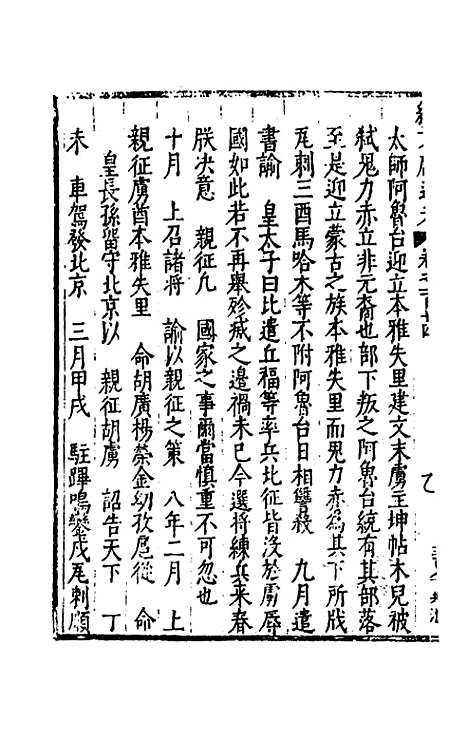 太師阿魯台迎立本雅失里建文末虜主坤帖木兒被
弑鬼力赤立非元裔也部下叛之阿魯台統有其部落
至是迎立蒙古之族本雅失里而鬼力赤為其下所戕
瓦剌三酋馬哈木等不附阿魯台日相讐殺　九月遣
書諭　皇太子曰比遣丘福等率兵北征皆沒於虜辱
國如此若不再舉殄滅之邊禍未已今選將練兵來春
朕決意　親征凡　國家之事爾當慎重不可忽也
十月　上召諸將　諭以親征之策　八年二月　上
親征虜酋本雅失里　命胡廣楊榮金幼孜扈從　命
皇長孫留守北京以　親征胡虜　詔告天下　丁
未　車駕發北京　三月甲戌　駐蹕鳴鑾戍瓦剌順